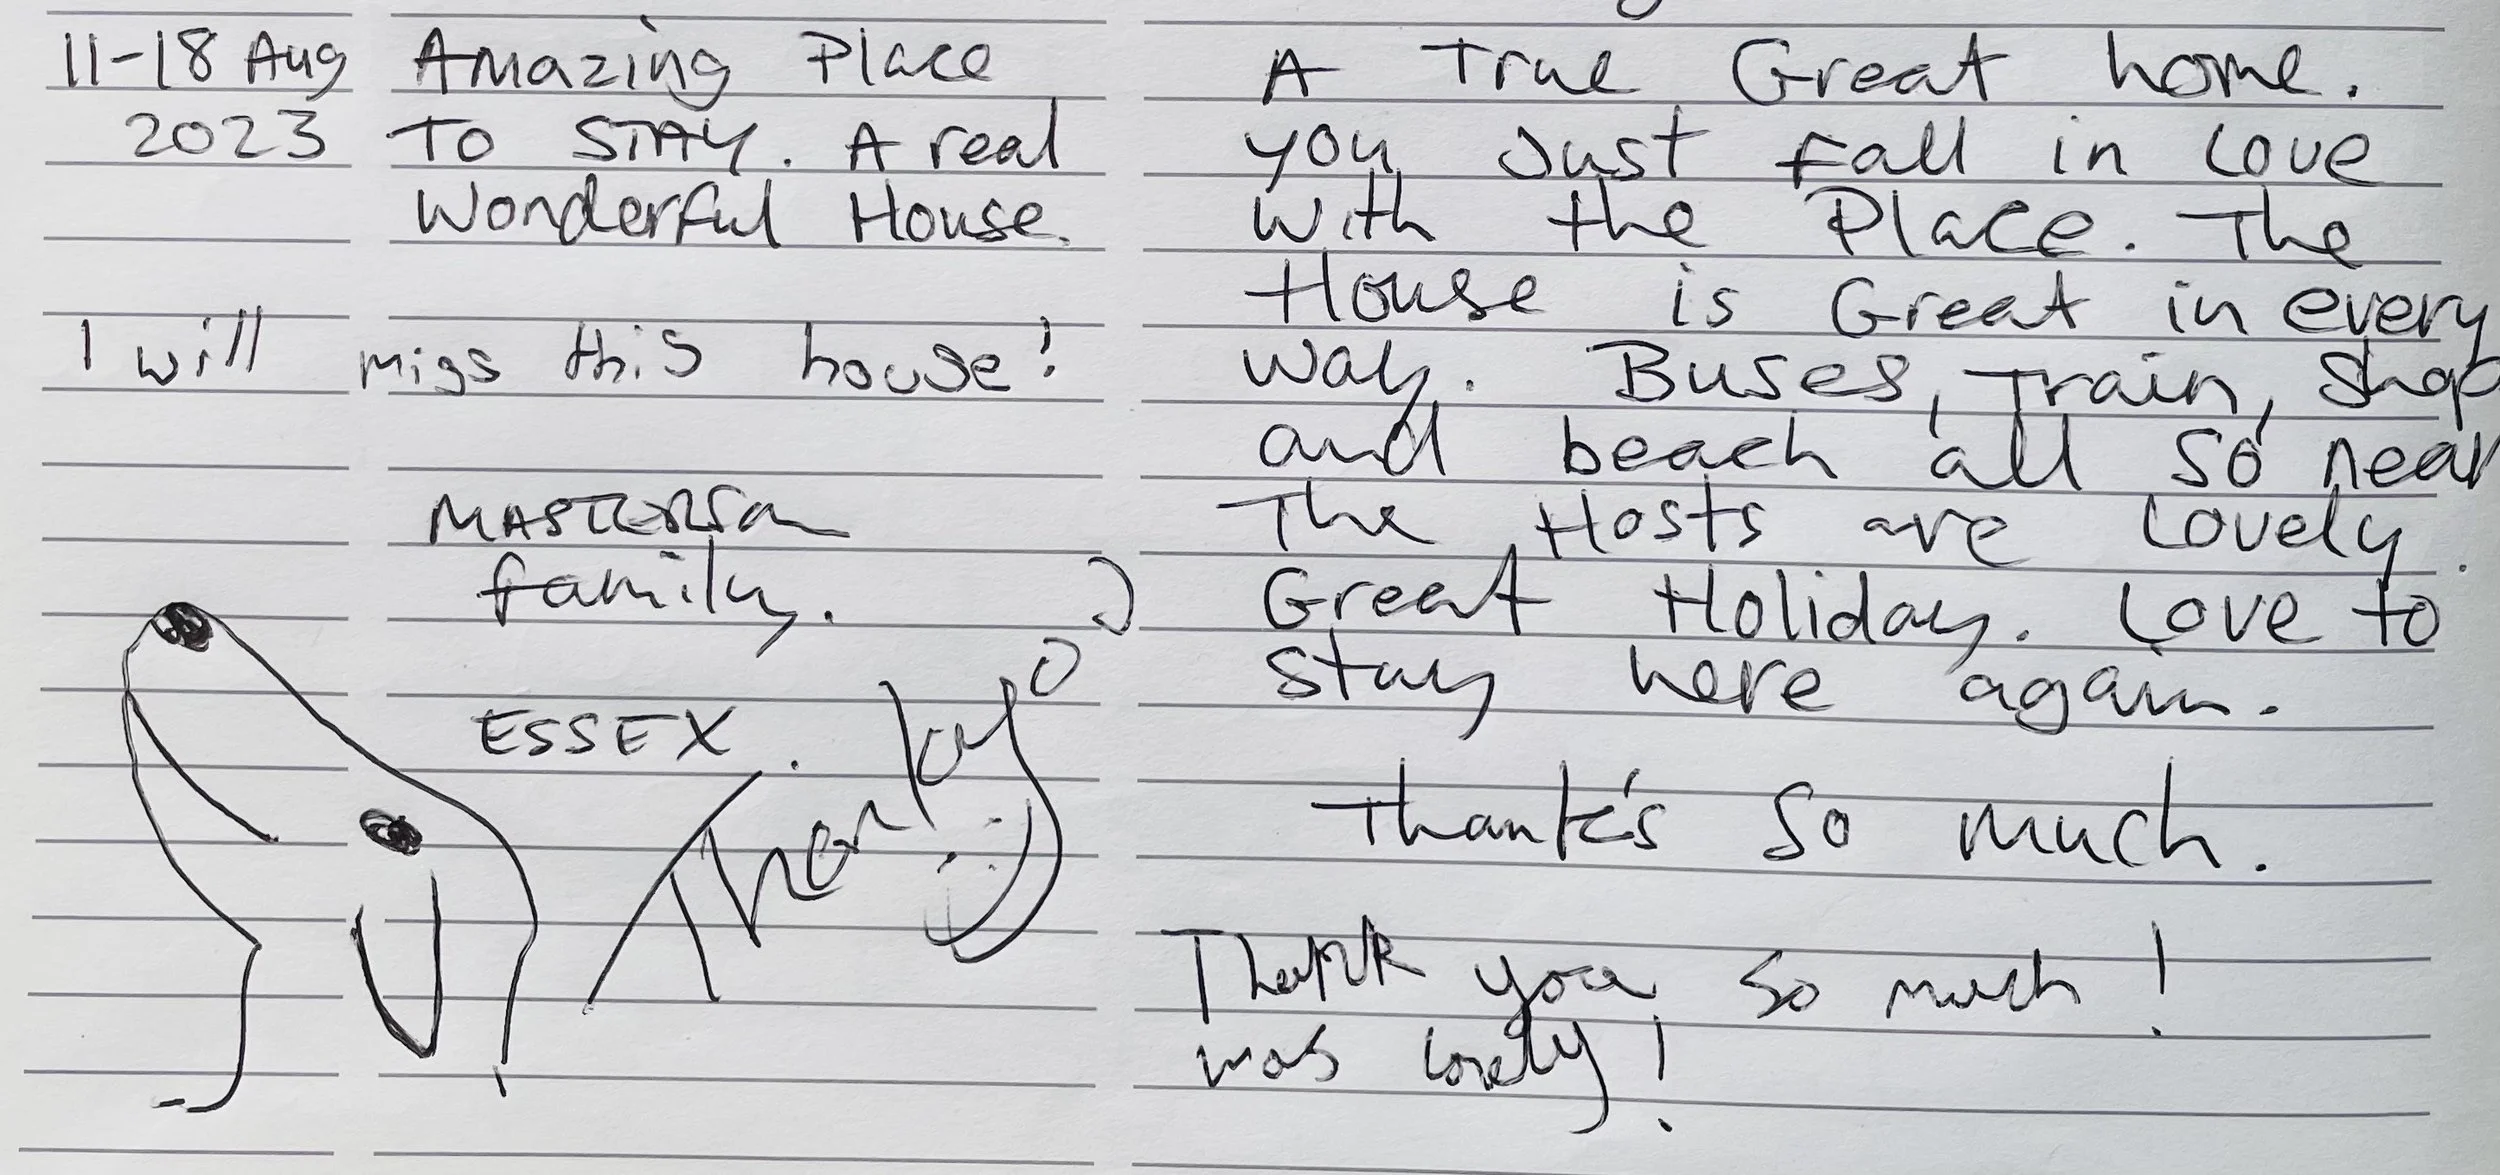 11-18 Aug
2023
Amazing Place
To STAY. A real
Wonderful House.
I will miss this house!
MASTERSON
family.
ESSEX.
Thank you
A True Great home.
you Just fall in Love
with the Place. The
House is Great in every
way. Buses, Train, Shop
and beach all so near
The Hosts are Lovely.
Great Holiday. Love to
stay here again.
Thank's So much.
Thank you so much!
was lovely!